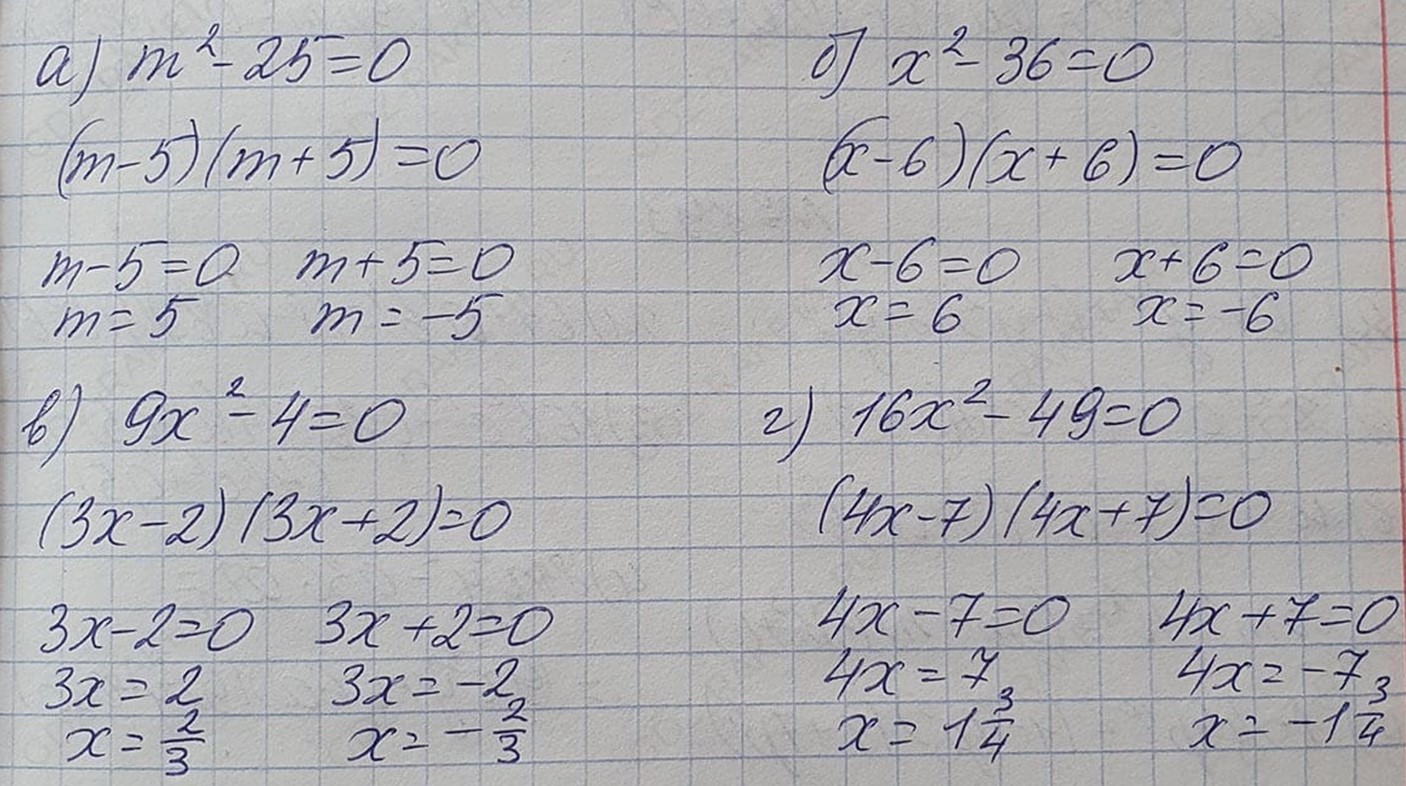 а) m² - 25 = 0
(m - 5)(m + 5) = 0
m - 5 = 0 m + 5 = 0
m = 5 m = -5
б) x² - 36 = 0
(x - 6)(x + 6) = 0
x - 6 = 0 x + 6 = 0
x = 6 x = -6
в) 9x² - 4 = 0
(3x - 2)(3x + 2) = 0
3x - 2 = 0 3x + 2 = 0
3x = 2 3x = -2
x = 2/3 x = -2/3
г) 16x² - 49 = 0
(4x - 7)(4x + 7) = 0
4x - 7 = 0 4x + 7 = 0
4x = 7 4x = -7
x = 1 3/4 x = -1 3/4